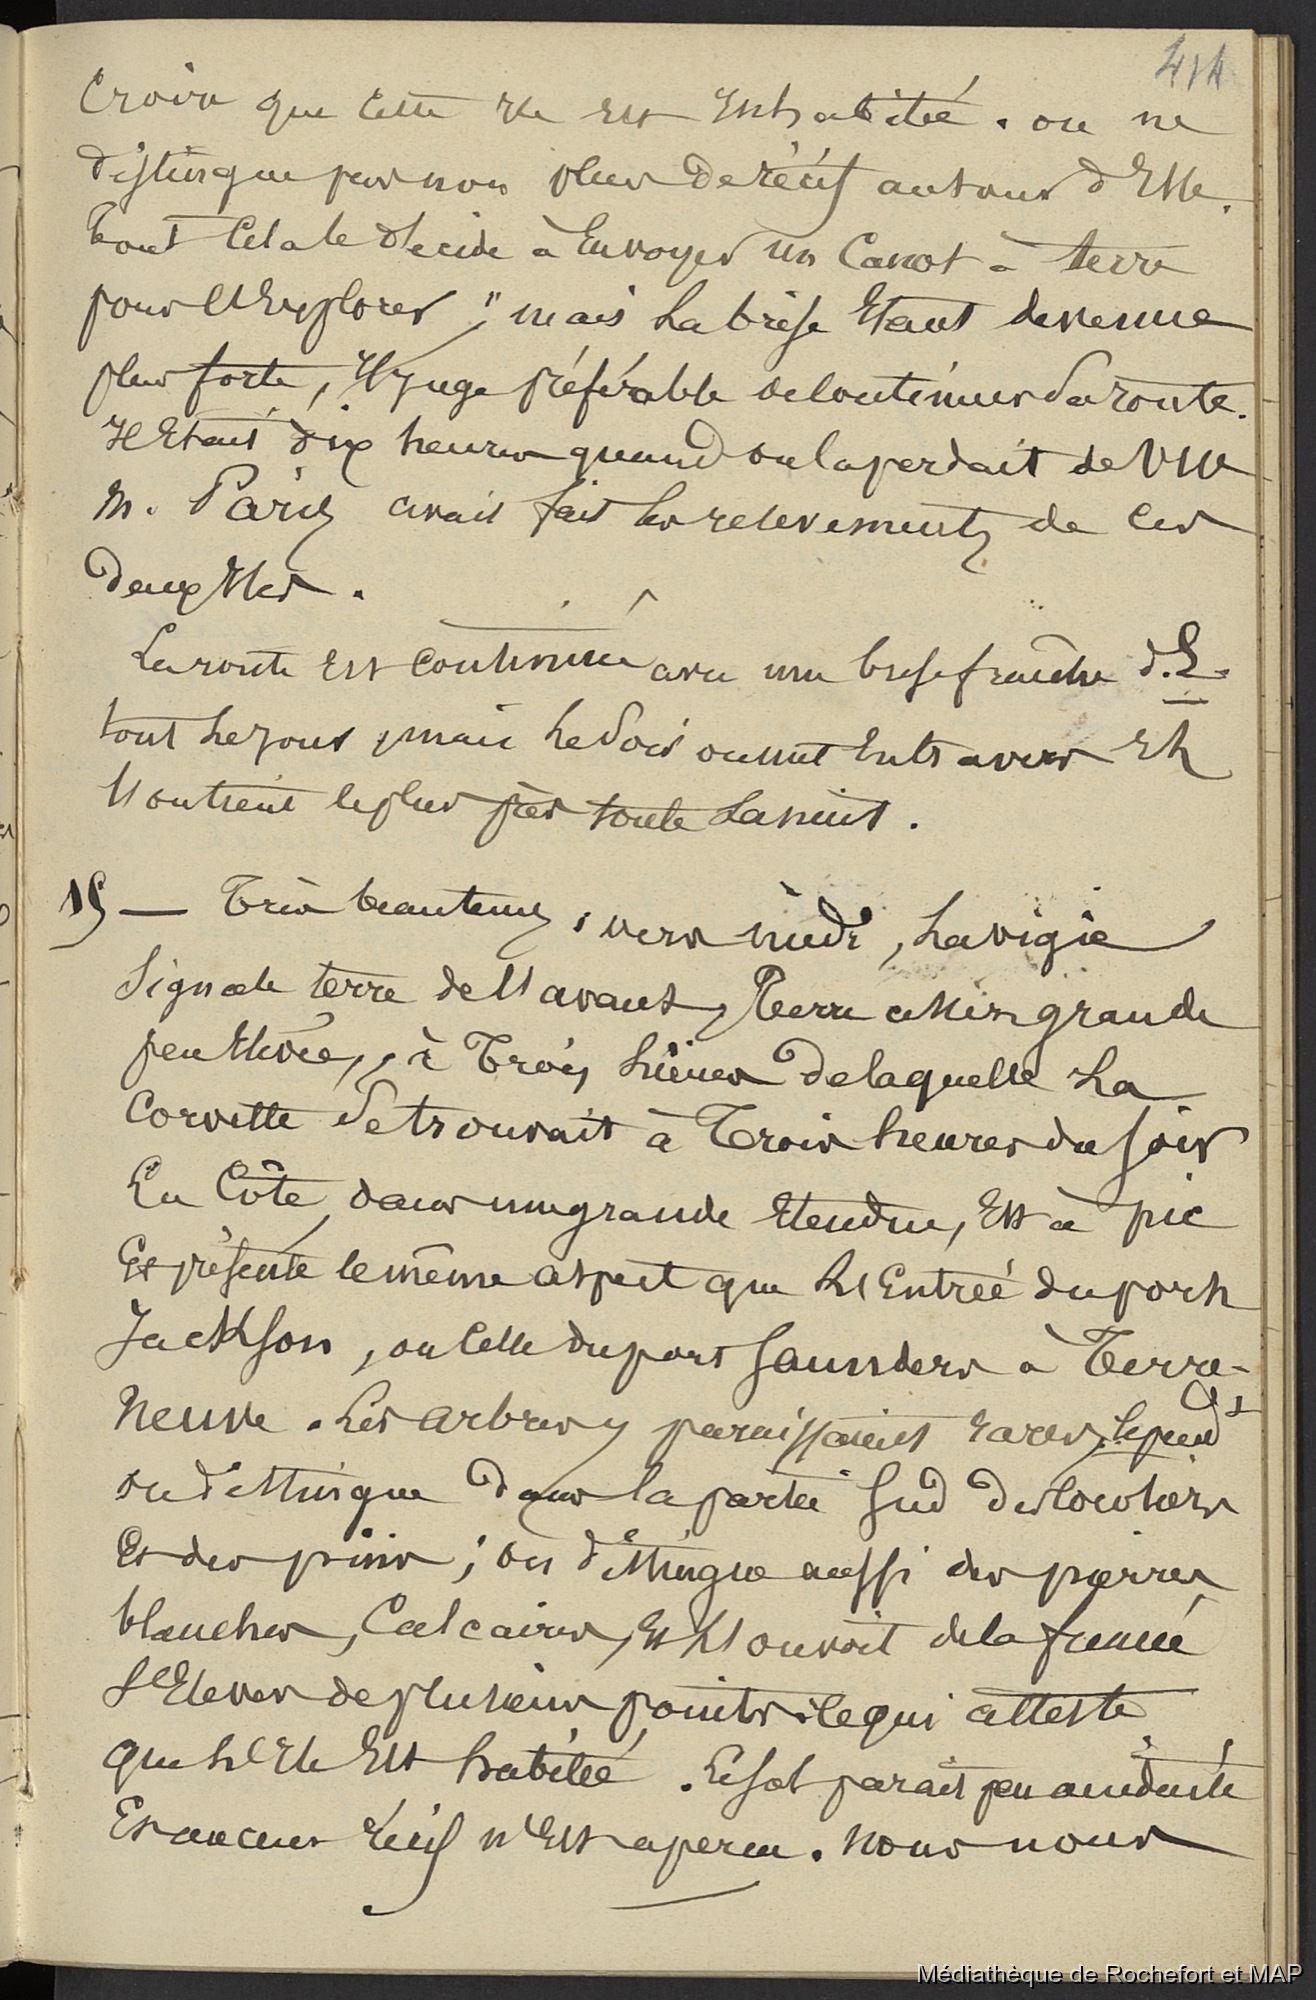 414
Croire que cette Ile est Inhabitée. on ne
distingue pas non plus de récif autour d'Elle.
tout Cela le décide à Envoyer un Canot à terre
pour l'Explorer ; mais La brise Etant devenue
plus forte, Il juge préférable de Continuer Sa route.
Il Etait dix heures quand on la perdait de vue
M. Paris avait fait les relevements de Ces
deux Iles.
La route Est Continuée avec une brise fraîche d. E.
tout Le jour, mais Le Soir on met En travers Et
l'on tient le plus près toute La nuit.
19 — Très beau temps, vers midi, La vigie
Signale terre de l'avant, Terre assez grande
peu Elevée, à Trois Lieues de laquelle La
Corvette Se trouvait à Trois heures du Soir
La Côte, dans une grande Etendue, Est à pic
Et présente le même aspect que l'Entrée du port
Jackson, ou Celle du port Saunders à Terre-
Neuve. Les arbres y paraissaient rares, Cepend^t
on distingue dans la partie Sud des Cocotiers
Et des pins ; on distingue aussi des pierres
blanches, Calcaires, Et l'on voit de la fumée
S'Elever de plusieurs points, Ce qui atteste
que l'Ile Est habitée. Le Sol parait peu accidenté
Et aucun récif n'Est aperçu. Nous nous
Médiathèque de Rochefort et MAP